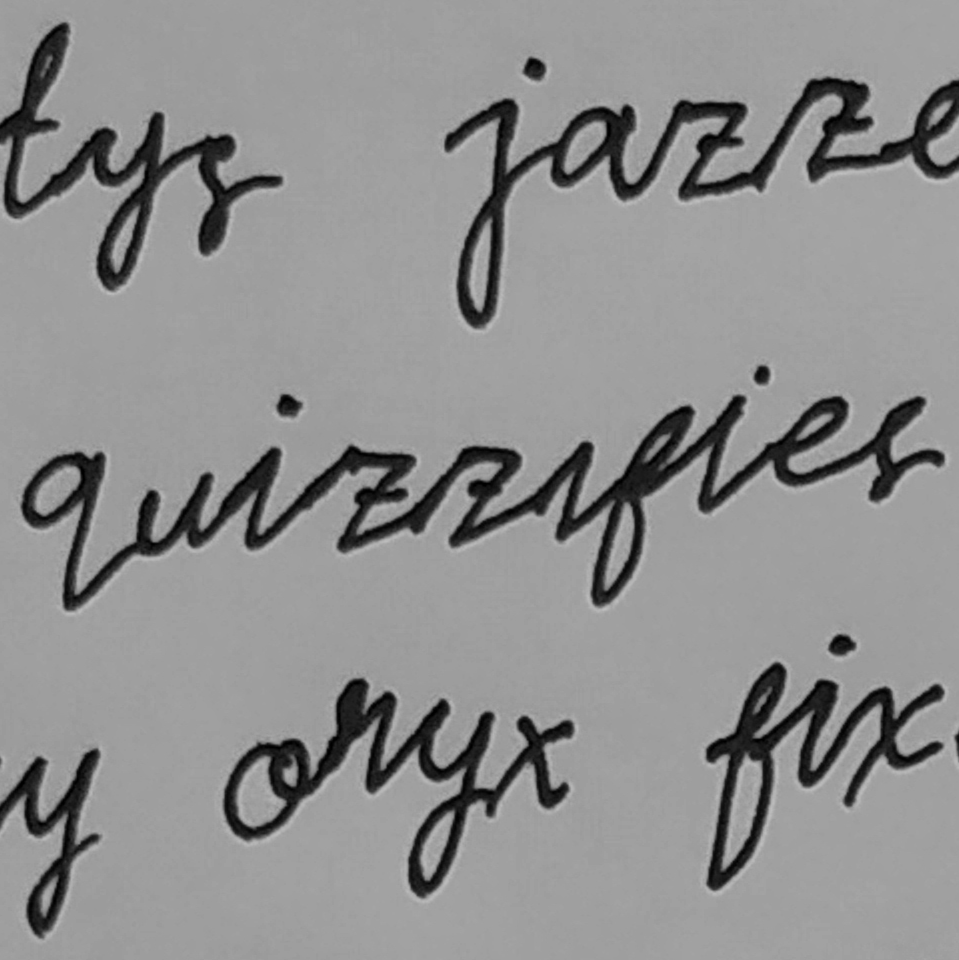 tys jazze
quizzifies
y oryx fix